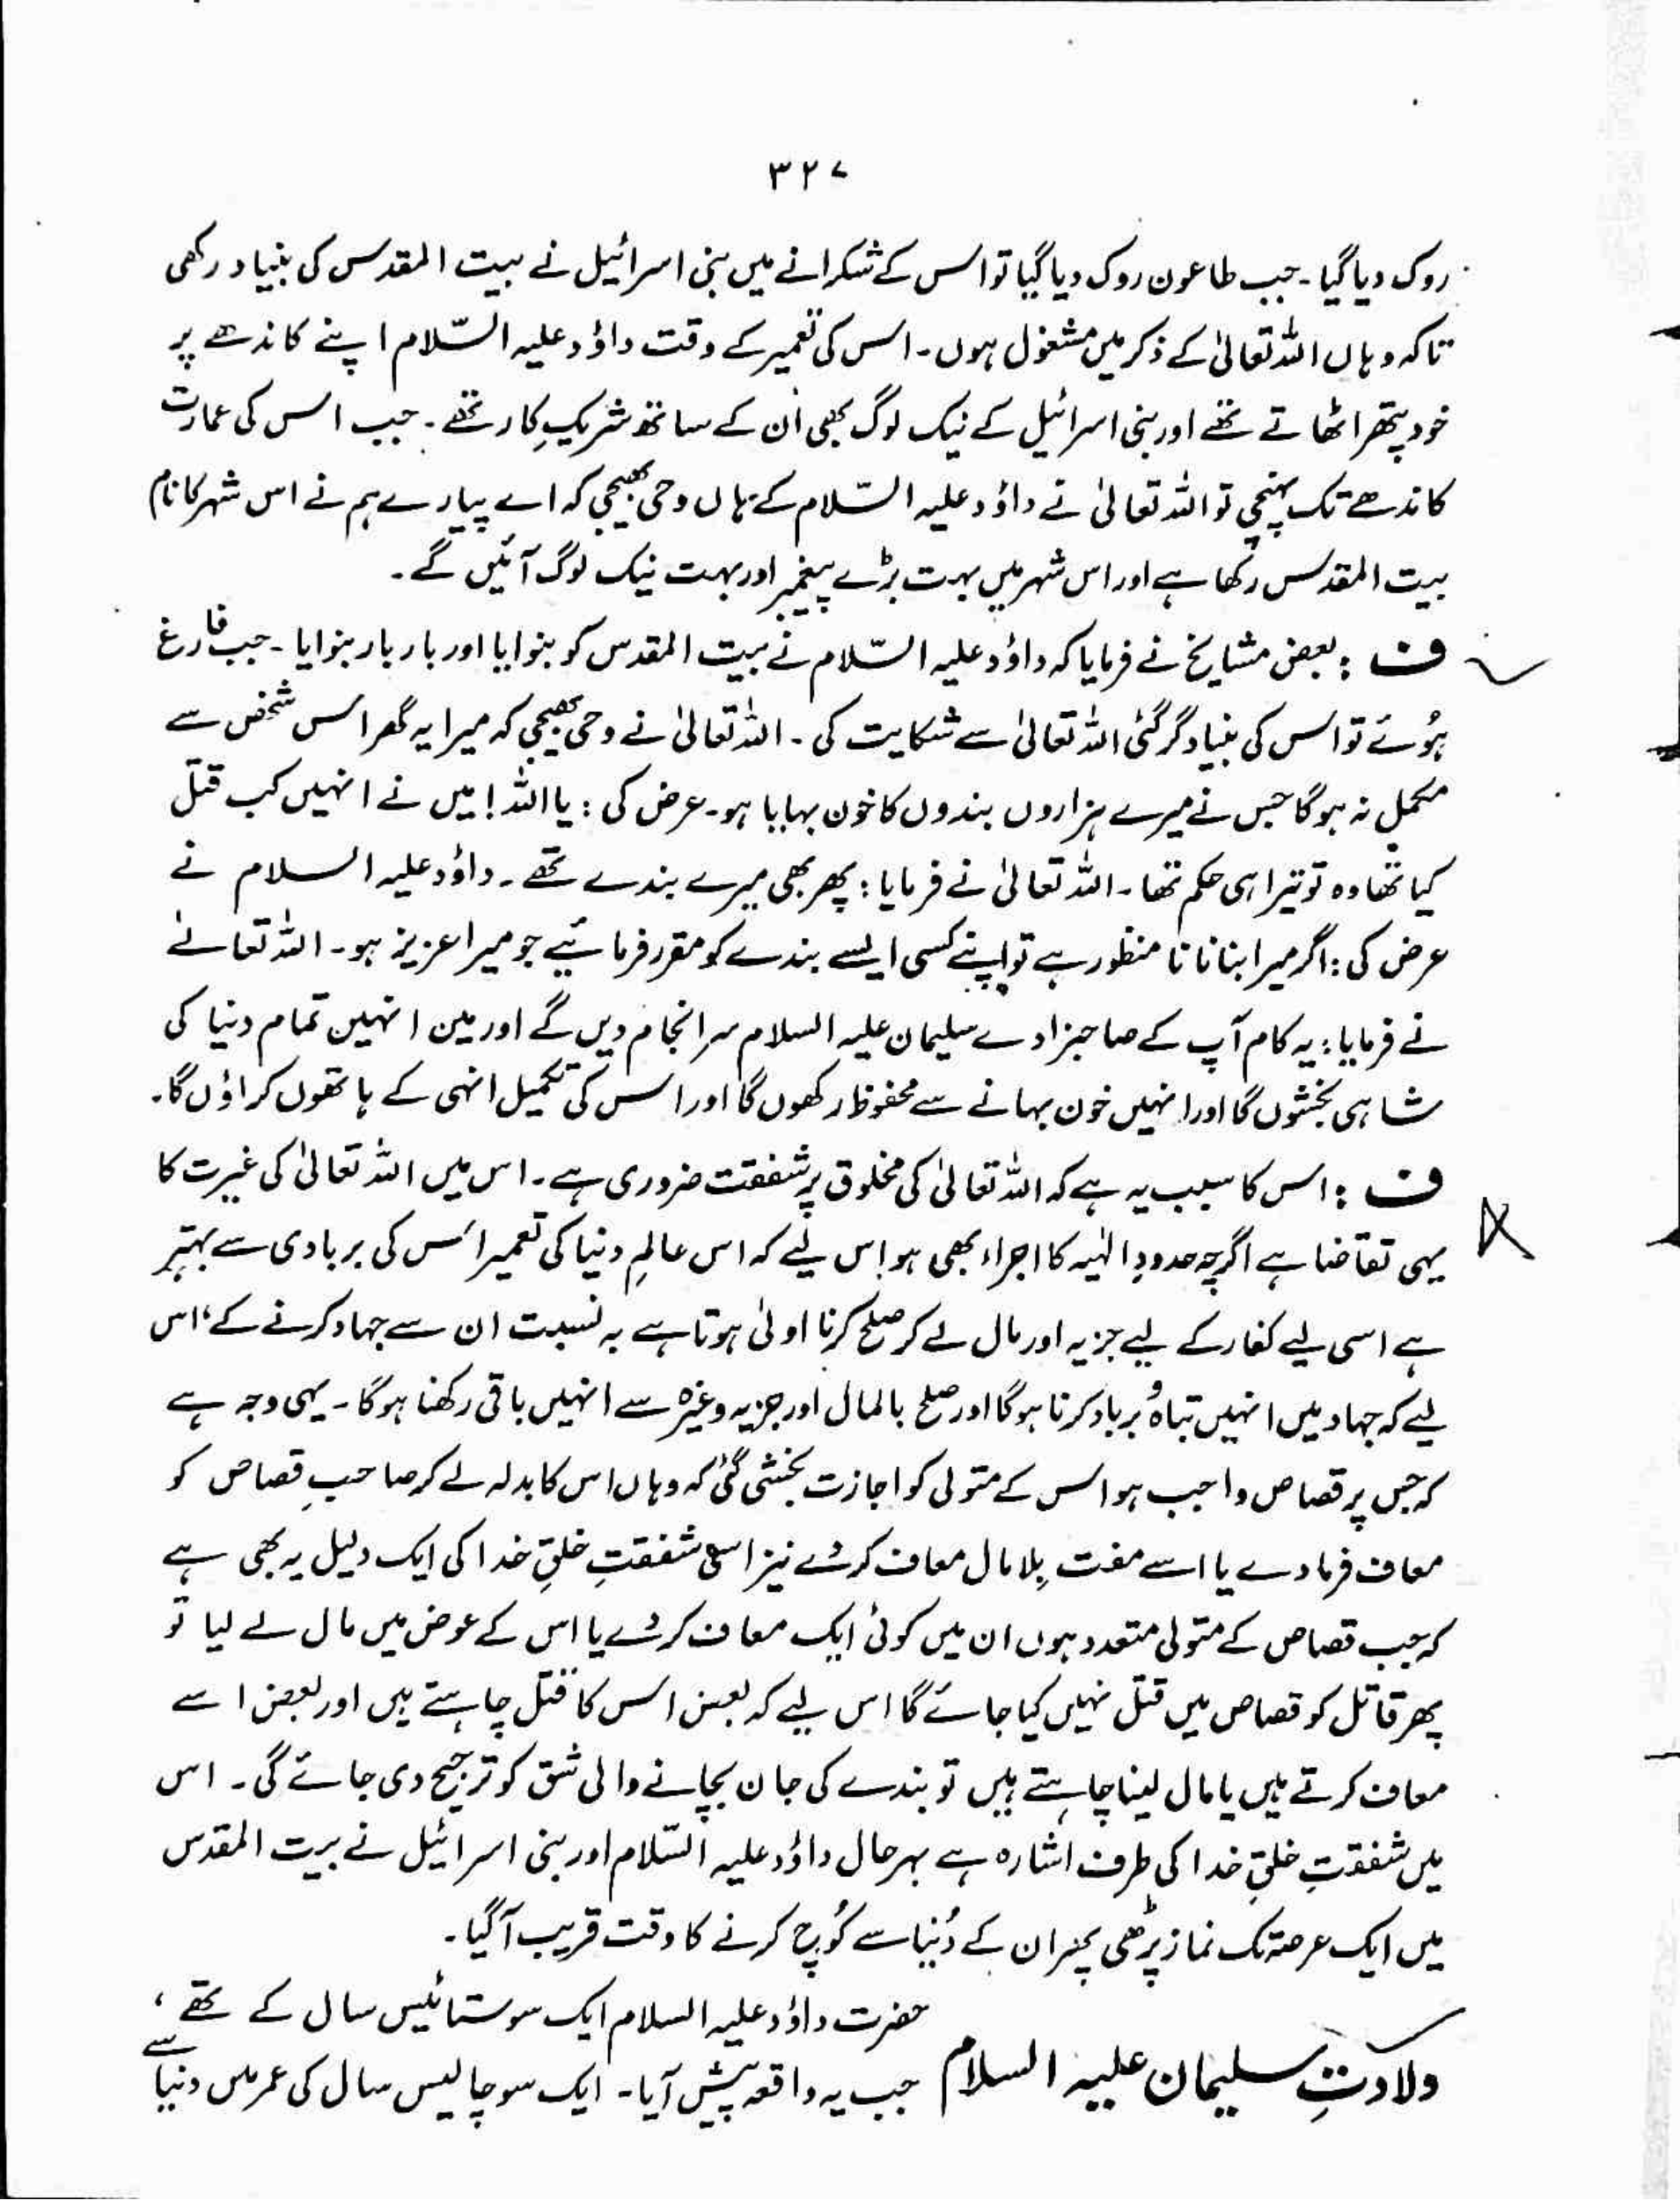 ۳۲۷
روک دیا گیا۔ جب طاعون روک دیا گیا تو اس کے شکرانے میں بنی اسرائیل نے بیت المقدس کی بنیاد رکھی
تاکہ وہاں اللہ تعالیٰ کے ذکر میں مشغول ہوں۔ اس کی تعمیر کے وقت داؤد علیہ السّلام اپنے کاندھے پر
خود پتھر اٹھاتے تھے اور بنی اسرائیل کے نیک لوگ بھی ان کے ساتھ شریکِ کار تھے۔ جب اس کی عمارت
کاندھے تک پہنچی تو اللہ تعالیٰ نے داؤد علیہ السّلام کے ہاں وحی بھیجی کہ اے پیارے ہم نے اس شہر کا نام
بیت المقدس رکھا ہے اور اس شہر میں بہت بڑے پیغمبر اور بہت نیک لوگ آئیں گے۔
ف : بعض مشایخ نے فرمایا کہ داؤد علیہ السّلام نے بیت المقدس کو بنوایا اور بار بار بنوایا۔ جب فارغ
ہُوئے تو اس کی بنیاد گر گئی اللہ تعالیٰ سے شکایت کی۔ اللہ تعالیٰ نے وحی بھیجی کہ میرا یہ گھر اس شخص سے
مکمل نہ ہوگا جس نے میرے ہزاروں بندوں کا خون بہایا ہو۔ عرض کی : یا اللہ! میں نے انہیں کب قتل
کیا تھا وہ تو تیرا ہی حکم تھا۔ اللہ تعالیٰ نے فرمایا : پھر بھی میرے بندے تھے۔ داؤد علیہ السلام نے
عرض کی : اگر میرا بنانا نا منظور ہے تو اپنے کسی ایسے بندے کو مقرر فرمائیے جو میرا عزیز ہو۔ اللہ تعالےٰ
نے فرمایا : یہ کام آپ کے صاحبزادے سلیمان علیہ السلام سرانجام دیں گے اور میں انہیں تمام دنیا کی
شاہی بخشوں گا اور انہیں خون بہانے سے محفوظ رکھوں گا اور اس کی تکمیل انہی کے ہاتھوں کراؤں گا۔
ف : اس کا سبب یہ ہے کہ اللہ تعالیٰ کی مخلوق پر شفقت ضروری ہے۔ اس میں اللہ تعالیٰ کی غیرت کا
یہی تقاضا ہے اگرچہ حدودِ الٰہیہ کا اجراء بھی ہو اس لیے کہ اس عالمِ دنیا کی تعمیر اس کی بربادی سے بہتر
ہے اسی لیے کفار کے لیے جزیہ اور مال لے کر صلح کرنا اولیٰ ہوتا ہے بہ نسبت ان سے جہاد کرنے کے، اس
لیے کہ جہاد میں انہیں تباہ و برباد کرنا ہوگا اور صلح بالمال اور جزیہ وغیرہ سے انہیں باقی رکھنا ہوگا۔ یہی وجہ ہے
کہ جس پر قصاص واجب ہو اس کے متولی کو اجازت بخشی گئی کہ وہاں اس کا بدلہ لے کر صاحبِ قصاص کو
معاف فرما دے یا اسے مفت بِلا مال معاف کر دے نیز اسی شفقتِ خلقِ خدا کی ایک دلیل یہ بھی ہے
کہ جب قصاص کے متولی متعدد ہوں ان میں کوئی ایک معاف کر دے یا اس کے عوض میں مال لے لیا تو
پھر قاتل کو قصاص میں قتل نہیں کیا جائے گا اس لیے کہ بعض اس کا قتل چاہتے ہیں اور بعض اسے
معاف کرتے ہیں یا مال لینا چاہتے ہیں تو بندے کی جان بچانے والی شق کو ترجیح دی جائے گی۔ اس
میں شفقتِ خلقِ خدا کی طرف اشارہ ہے بہرحال داؤد علیہ السّلام اور بنی اسرائیل نے بیت المقدس
میں ایک عرصہ تک نماز پڑھی پھر ان کے دُنیا سے کُوچ کرنے کا وقت قریب آگیا۔
ولادتِ سلیمان علیہ السلام
حضرت داؤد علیہ السلام ایک سو ستائیس سال کے تھے،
جب یہ واقعہ پیش آیا۔ ایک سو چالیس سال کی عمر میں دنیا سے